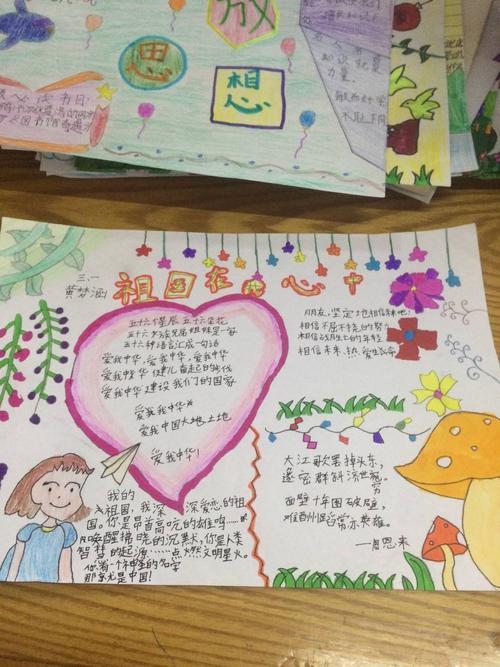 放
思
想
识就是
力量。
敏而好学
不耻下问
三、一
黄梦涵
祖国在我心中
五十六个星辰 五十六朵花
五十六族兄弟姐妹是一家
五十六种语言汇成一句话
爱我中华,爱我中华,爱我中华
爱我中华 健儿奋起的步伐
爱我中华 建设我们的国家
爱我中华
爱我中国大地土地
爱我中华!
朋友,坚定地相信未来吧!
相信不屈不挠的努力
相信战胜死亡的年轻
相信未来、热爱生命
大江歌罢掉头东,
邃密群科济世穷。
面壁十年图破壁,
难酬蹈海亦英雄。
—周恩来
我的
祖国,我深深爱恋的祖
国。你是昂首高吭的雄鸡……
唤醒拂晓的沉默,你是人类
智慧的起源……点燃文明星火。
你有一个神圣的名字
那就是中国!